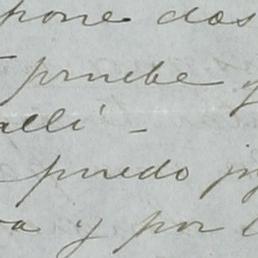 pone dos
pruebe y
allí -
puedo
y por